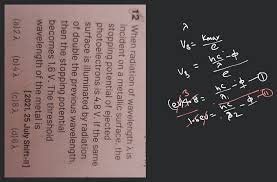 12 When radiation of wavelength λ is
incident on a metallic surface, the
stopping potential of ejected
photoelectrons is 4.8 V. If the same
surface is illuminated by radiation
of double the previous wavelength,
then the stopping potential
becomes 1.6 V. The threshold
wavelength of the metal is
[2021, 25 July Shift-II]
(a) 2 λ (b) 4 λ (c) 8 λ (d) 6 λ
λ
Vs = Kmax / e
Vs = hc/λ - ϕ / e
hc/λ - ϕ